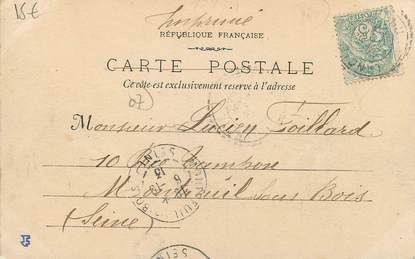 15€
Imprimé
RÉPUBLIQUE FRANÇAISE
CARTE POSTALE
Ce côté est exclusivement réservé à l'adresse
07
Monsieur Lucien Foillard
10 Rue
Montreuil sous Bois
(Seine)